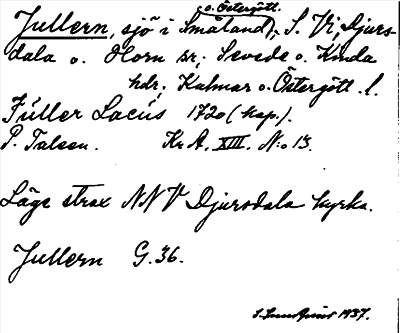 o. Östergötl.
Jullern, sjö i Småland, S. Vi, Djurs-
dala o. Horn sn; Sevede o. Kinda
hdr, Kalmar o. Östergötl. l.
Füller Lacus 1720 (kop.).
P. Talsen. Kr A. XIII. N:o 13.
Läge strax NNV Djursdala kyrka.
Jullern G. 36.
1937.